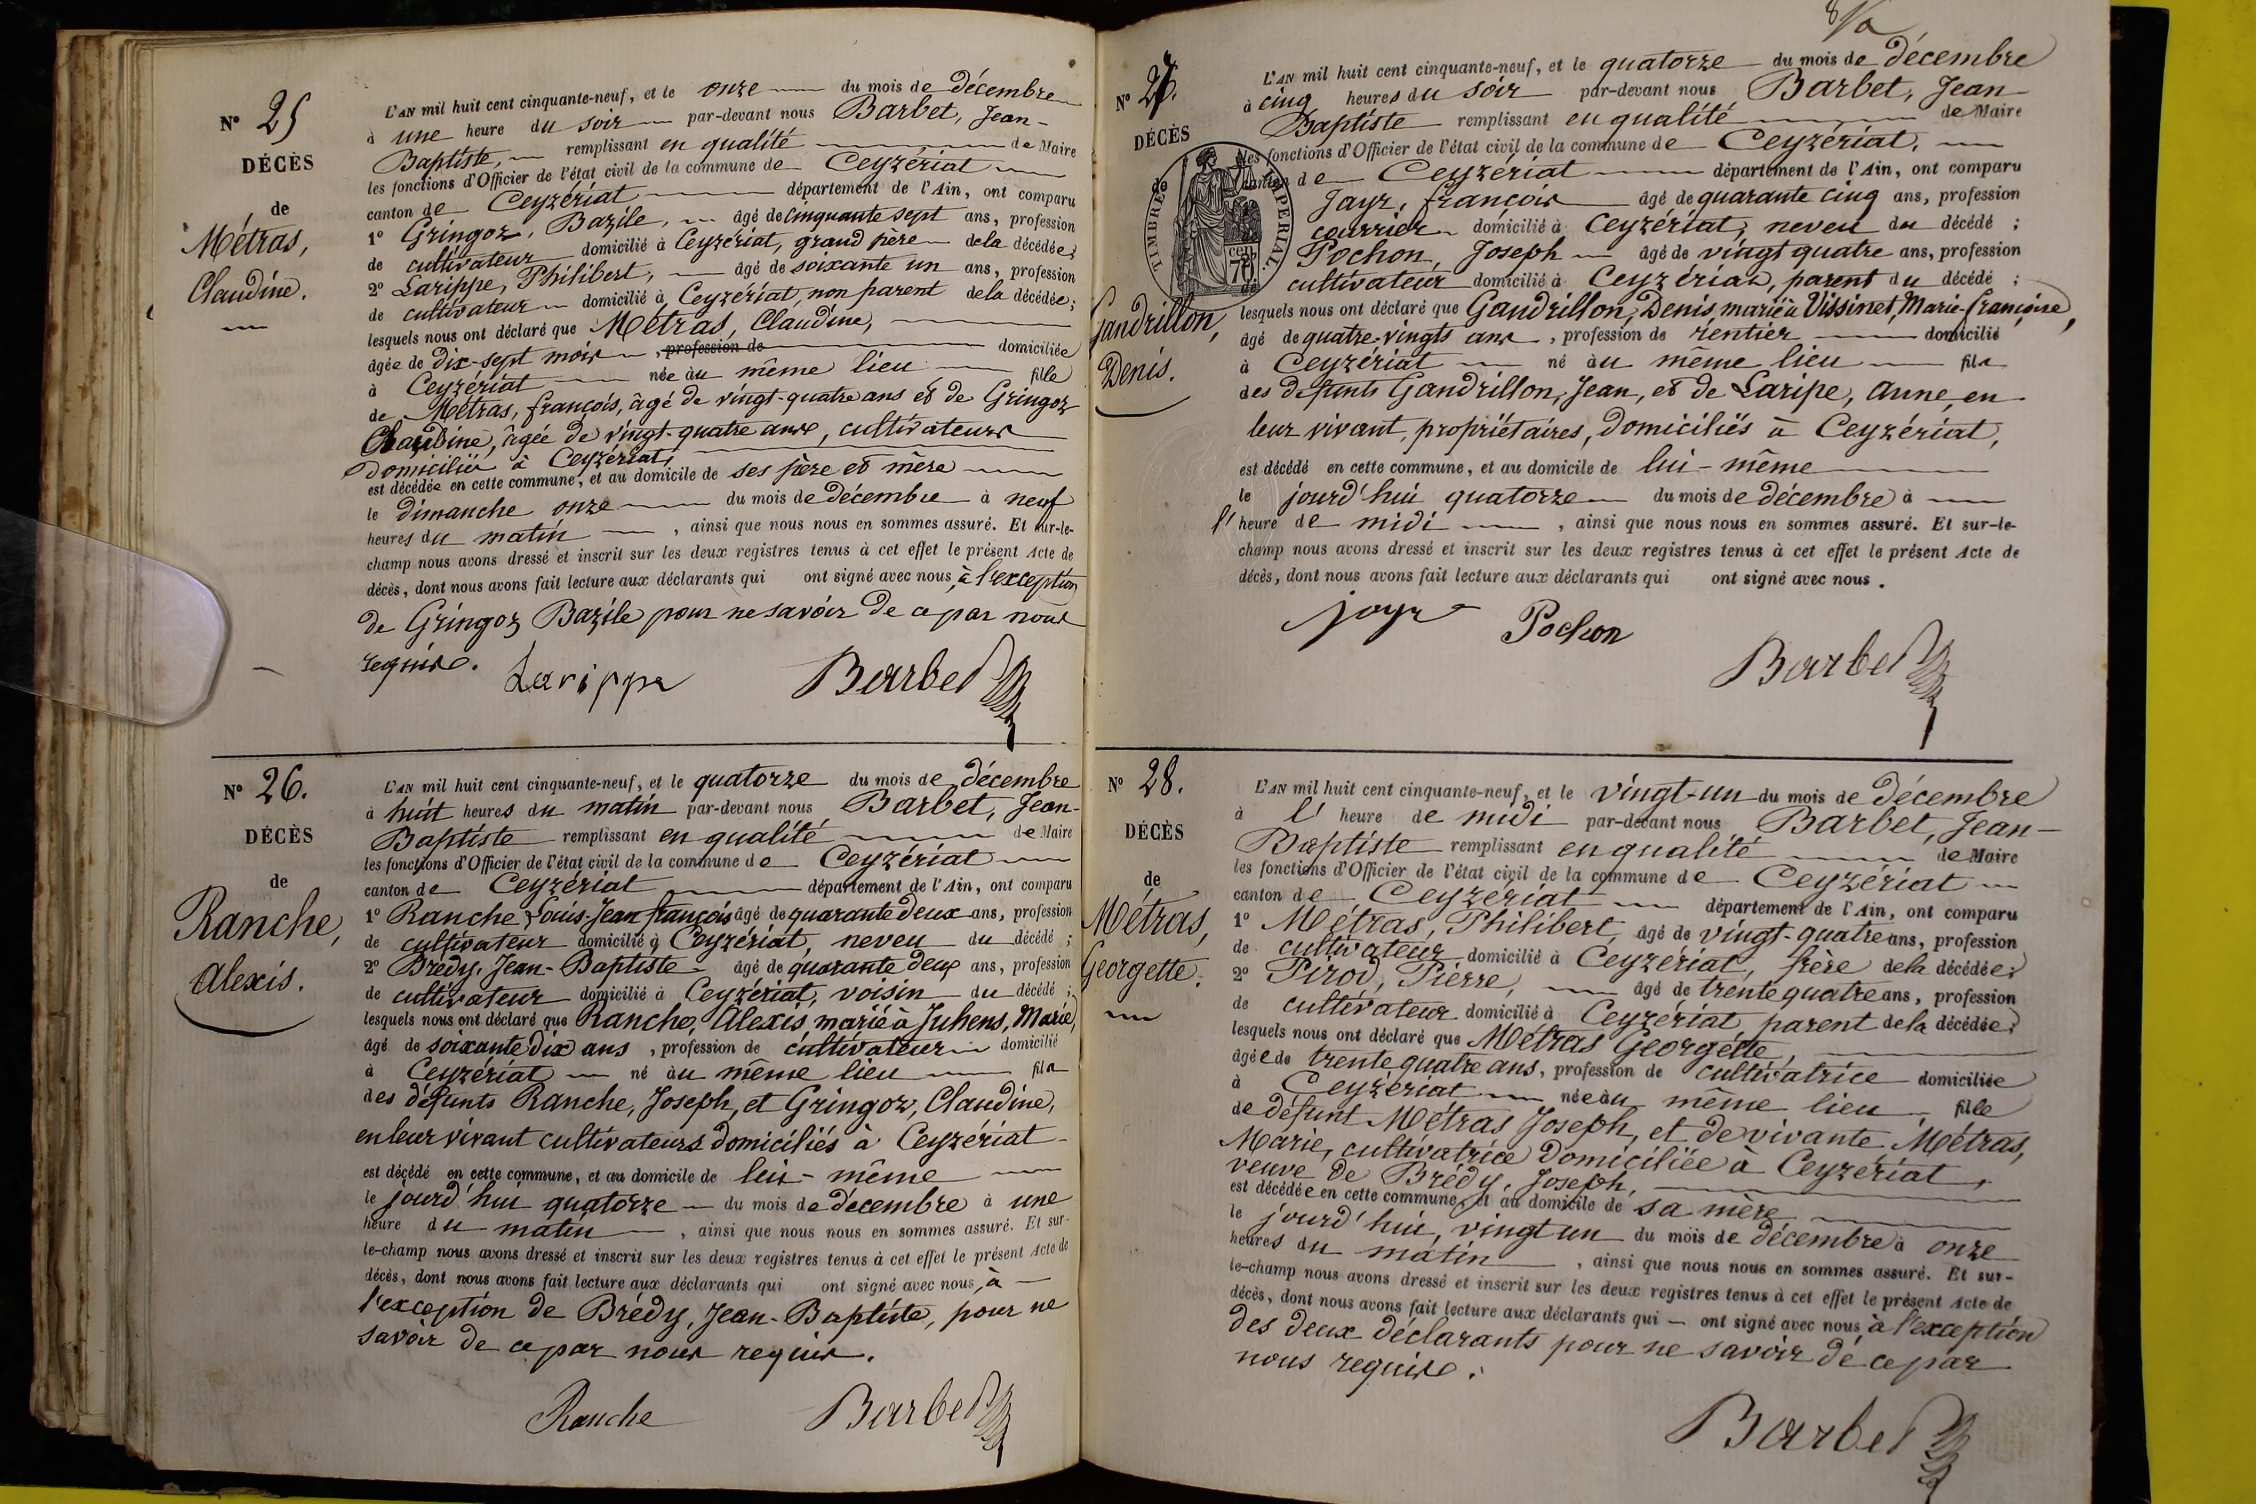 N° 25
DÉCÈS
de
Métras,
Claudine.
L'AN mil huit cent cinquante-neuf, et le onze du mois de décembre
à une heure du soir par-devant nous Barbet, Jean-
Baptiste, remplissant en qualité de Maire
les fonctions d'Officier de l'état civil de la commune de Ceyzériat
canton de Ceyzériat département de l'Ain, ont comparu
1° Gringoz, Bazile, âgé de cinquante sept ans, profession
de cultivateur domicilié à Ceyzériat, grand père de la décédée;
2° Larippe, Philibert, âgé de soixante un ans, profession
de cultivateur domicilié à Ceyzériat, non parent de la décédée;
lesquels nous ont déclaré que Métras, Claudine,
âgée de dix-sept mois, profession de domiciliée
à Ceyzériat née au même lieu fille
de Métras, françois, âgé de vingt-quatre ans et de Gringoz
Claudine, âgée de vingt-quatre ans, cultivateurs
domiciliés à Ceyzériat,
est décédée en cette commune, et au domicile de ses père et mère
le dimanche onze du mois de décembre à neuf
heures du matin, ainsi que nous nous en sommes assuré. Et sur-le-
champ nous avons dressé et inscrit sur les deux registres tenus à cet effet le présent Acte de
décès, dont nous avons fait lecture aux déclarants qui ont signé avec nous, à l'exception
de Gringoz Bazile pour ne savoir de ce par nous
requis.
Larippe Barbet
N° 26.
DÉCÈS
de
Ranche,
Alexis.
L'AN mil huit cent cinquante-neuf, et le quatorze du mois de décembre
à huit heures du matin par-devant nous Barbet, Jean-
Baptiste remplissant en qualité de Maire
les fonctions d'Officier de l'état civil de la commune de Ceyzériat
canton de Ceyzériat département de l'Ain, ont comparu
1° Ranche, Louis-Jean françois âgé de quarante deux ans, profession
de cultivateur domicilié à Ceyzériat, neveu du décédé;
2° Brédy, Jean-Baptiste âgé de quarante deux ans, profession
de cultivateur domicilié à Ceyzériat, voisin du décédé;
lesquels nous ont déclaré que Ranche, Alexis, marié à Juhens, Marie,
âgé de soixante dix ans, profession de cultivateur domicilié
à Ceyzériat né au même lieu fils
des défunts Ranche, Joseph, et Gringoz, Claudine,
en leur vivant cultivateurs domiciliés à Ceyzériat
est décédé en cette commune, et au domicile de lui-même
le jourd'hui quatorze du mois de décembre à une
heure du matin, ainsi que nous nous en sommes assuré. Et sur-
le-champ nous avons dressé et inscrit sur les deux registres tenus à cet effet le présent Acte de
décès, dont nous avons fait lecture aux déclarants qui ont signé avec nous, à
l'exception de Brédy, Jean-Baptiste, pour ne
savoir de ce par nous requis.
Ranche Barbet
N° 27.
DÉCÈS
de
TIMBRE IMPÉRIAL.
cen
75
Gandrillon,
Denis.
L'AN mil huit cent cinquante-neuf, et le quatorze du mois de décembre
à cinq heures du soir par-devant nous Barbet, Jean-
Baptiste remplissant en qualité de Maire
les fonctions d'Officier de l'état civil de la commune de Ceyzériat,
canton de Ceyzériat département de l'Ain, ont comparu
Jayr, françois âgé de quarante cinq ans, profession
courrier domicilié à Ceyzériat, neveu du décédé;
Pochon, Joseph âgé de vingt quatre ans, profession
cultivateur domicilié à Ceyzériat, parent du décédé;
lesquels nous ont déclaré que Gandrillon, Denis, marié à Vissinet, Marie-françoise,
âgé de quatre-vingts ans, profession de rentier domicilié
à Ceyzériat né au même lieu fils
des défunts Gandrillon, Jean, et de Laripe, Anne, en
leur vivant, propriétaires, domiciliés à Ceyzériat,
est décédé en cette commune, et au domicile de lui-même
le jourd'hui quatorze du mois de décembre à
l' heure de midi, ainsi que nous nous en sommes assuré. Et sur-le-
champ nous avons dressé et inscrit sur les deux registres tenus à cet effet le présent Acte de
décès, dont nous avons fait lecture aux déclarants qui ont signé avec nous.
jayr Pochon Barbet
N° 28.
DÉCÈS
de
Métras,
Georgette.
L'AN mil huit cent cinquante-neuf, et le vingt-un du mois de décembre
à l' heure de midi par-devant nous Barbet, Jean-
Baptiste remplissant en qualité de Maire
les fonctions d'Officier de l'état civil de la commune de Ceyzériat
canton de Ceyzériat département de l'Ain, ont comparu
1° Métras, Philibert, âgé de vingt-quatre ans, profession
de cultivateur domicilié à Ceyzériat, frère de la décédée;
2° Pirod, Pierre, âgé de trente quatre ans, profession
de cultivateur domicilié à Ceyzériat, parent de la décédée;
lesquels nous ont déclaré que Métras Georgette,
âgée de trente quatre ans, profession de cultivatrice domiciliée
à Ceyzériat née au même lieu fille
de défunt Métras Joseph, et de vivante Métras,
Marie, cultivatrice domiciliée à Ceyzériat,
veuve de Brédy, Joseph,
est décédée en cette commune, et au domicile de sa mère
le jourd'hui, vingt un du mois de décembre à onze
heures du matin, ainsi que nous nous en sommes assuré. Et sur-
le-champ nous avons dressé et inscrit sur les deux registres tenus à cet effet le présent Acte de
décès, dont nous avons fait lecture aux déclarants qui ont signé avec nous à l'exception
des deux déclarants pour ne savoir de ce par
nous requis.
Barbet